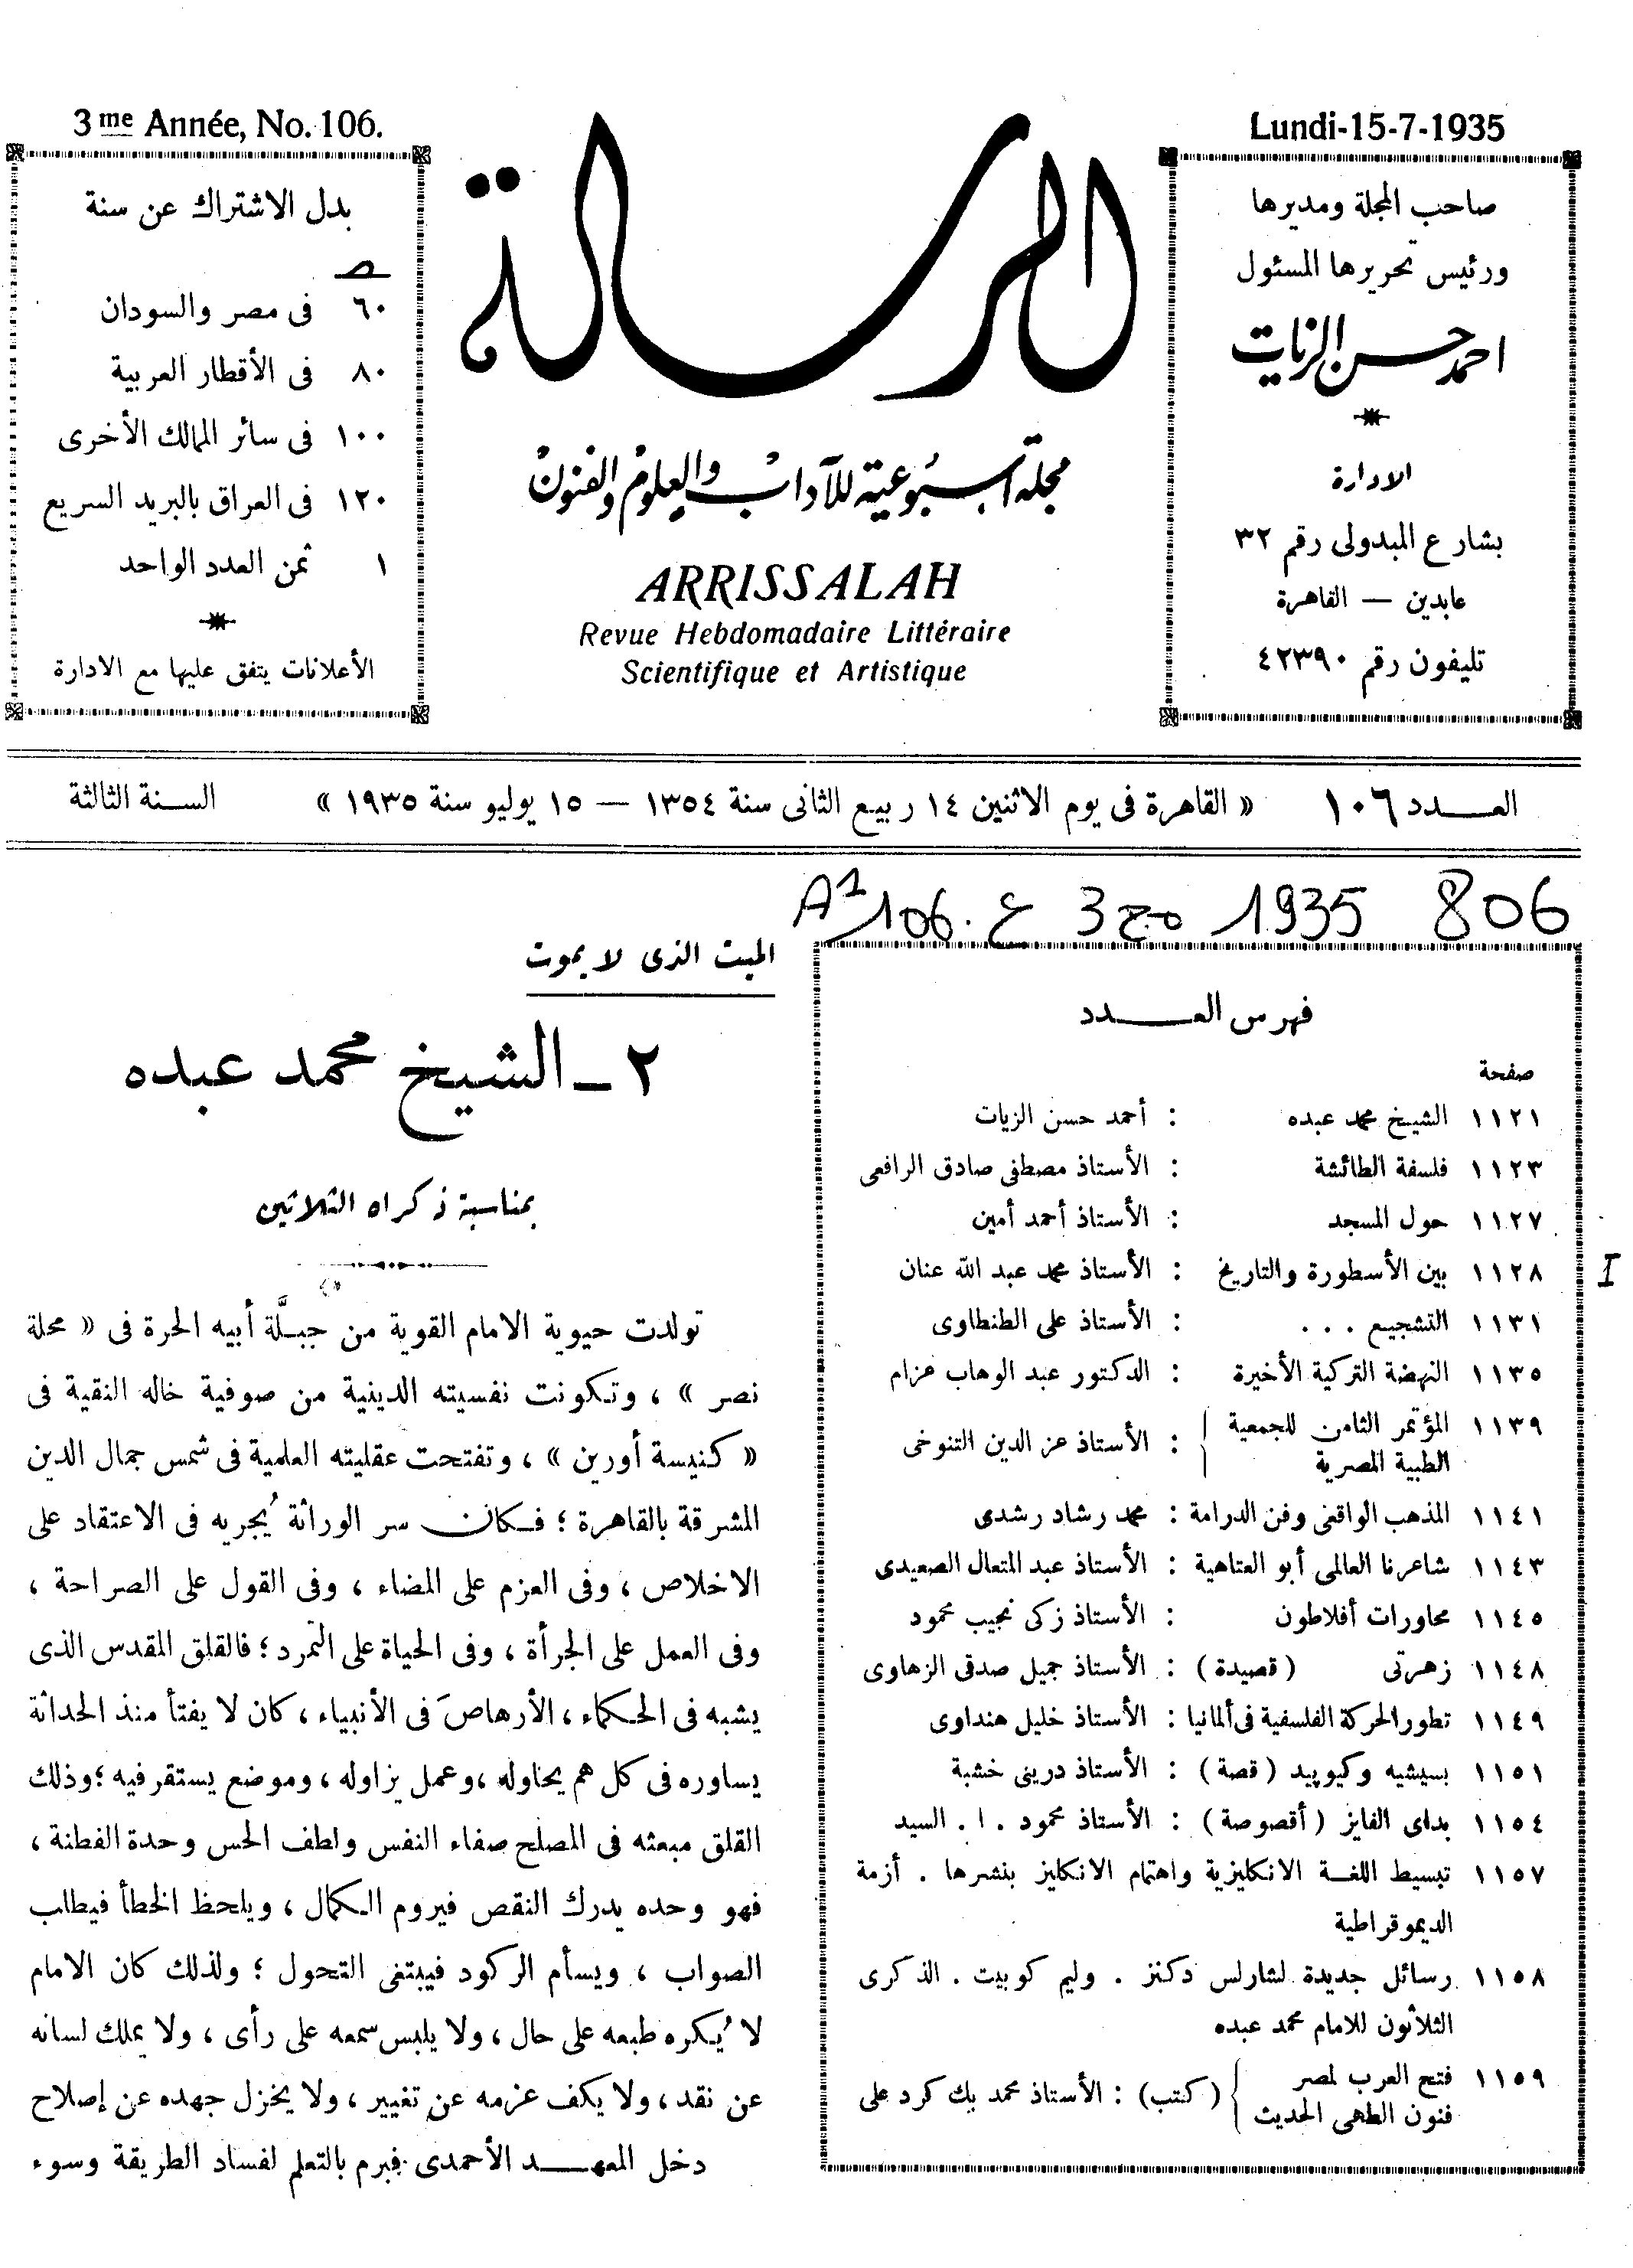 3me Année, No. 106.
Lundi-15-7-1935
صاحب المجلة ومديرها
ورئيس تحريرها المسئول
احمد حسن الزيات
الادارة
بشارع المبدولى رقم ٣٢
عابدين — القاهرة
تليفون رقم ٤٢٣٩٠
الرسالة
مجلة أسبوعية للآداب والعلوم والفنون
ARRISSALAH
Revue Hebdomadaire Littéraire
Scientifique et Artistique
بدل الاشتراك عن سنة
ص
٦٠ فى مصر والسودان
٨٠ فى الأقطار العربية
١٠٠ فى سائر الممالك الأخرى
١٢٠ فى العراق بالبريد السريع
١ ثمن العدد الواحد
الأعلانات يتفق عليها مع الادارة
العـــدد ١٠٦ « القاهرة فى يوم الاثنين ١٤ ربيع الثانى سنة ١٣٥٤ — ١٥ يوليو سنة ١٩٣٥ » الســنة الثالثة
806 1935 مج 3 ع 106. A1
فهرس العـــدد
صفحة
١١٢١ الشيخ محمد عبده : أحمد حسن الزيات
١١٢٣ فلسفة الطائشة : الأستاذ مصطفى صادق الرافعى
١١٢٧ حول المسجد : الأستاذ أحمد أمين
١١٢٨ بين الأسطورة والتاريخ : الأستاذ محمد عبد الله عنان
I
١١٣١ التشجيع . . . : الأستاذ على الطنطاوى
١١٣٥ النهضة التركية الأخيرة : الدكتور عبد الوهاب عزام
١١٣٩ المؤتمر الثامن للجمعية
الطبية المصرية } : الأستاذ عز الدين التنوخى
١١٤١ المذهب الواقعى وفن الدرامة : محمد رشاد رشدى
١١٤٣ شاعرنا العالمى أبو العتاهية : الأستاذ عبد المتعال الصعيدى
١١٤٥ محاورات أفلاطون : الأستاذ زكى نجيب محمود
١١٤٨ زهرتى (قصيدة) : الأستاذ جميل صدقى الزهاوى
١١٤٩ تطور الحركة الفلسفية فى ألمانيا : الأستاذ خليل هنداوى
١١٥١ بسيشيه وكيوپيد (قصة) : الأستاذ درينى خشبة
١١٥٤ بداى الفايز (أقصوصة) : الأستاذ محمود . ا . السيد
١١٥٧ تبسيط اللغـة الانكليزية واهتمام الانكليز بنشرها . أزمة
الديموقراطية
١١٥٨ رسائل جديدة لشارلس دكنز . وليم كوبيت . الذكرى
الثلاثون للامام محمد عبده
١١٥٩ فتح العرب لمصر
فنون الطهى الحديث } (كتب) : الأستاذ محمد بك كرد على
الميت الذى لا يموت
٢ ـ الشيخ محمد عبده
بمناسبة ذكراه الثلاثين
تولدت حيوية الامام القوية من جبـلَّة أبيه الحرة فى « محلة
نصر » ، وتكونت نفسيته الدينية من صوفية خاله النقية فى
« كنيسة أورين » ، وتفتحت عقليته العلمية فى شمس جمال الدين
المشرقة بالقاهرة ؛ فـكان سر الوراثة يُجريه فى الاعتقاد على
الاخلاص ، وفى العزم على المضاء ، وفى القول على الصراحة ،
وفى العمل على الجرأة ، وفى الحياة على التمرد ؛ فالقلق المقدس الذى
يشبه فى الحـكماء ، الأرهاصَ فى الأنبياء ، كان لا يفتأ منذ الحداثة
يساوره فى كل هم يحاوله ، وعمل يزاوله ، وموضع يستقر فيه ؛ وذلك
القلق مبعثه فى المصلح صفاء النفس ولطف الحس وحدة الفطنة ،
فهو وحده يدرك النقص فيروم الـكمال ، ويلحظ الخطأ فيطلب
الصواب ، ويسأم الركود فيبتغى التحول ؛ ولذلك كان الامام
لا يُـكره طبعه على حال ، ولا يلبس سمعه على رأى ، ولا يملك لسانه
عن نقد ، ولا يكف عزمه عن تغيير ، ولا يخزل جهده عن إصلاح
دخل المعهـــد الأحمدى فبرم بالتعلم لفساد الطريقة وسوء